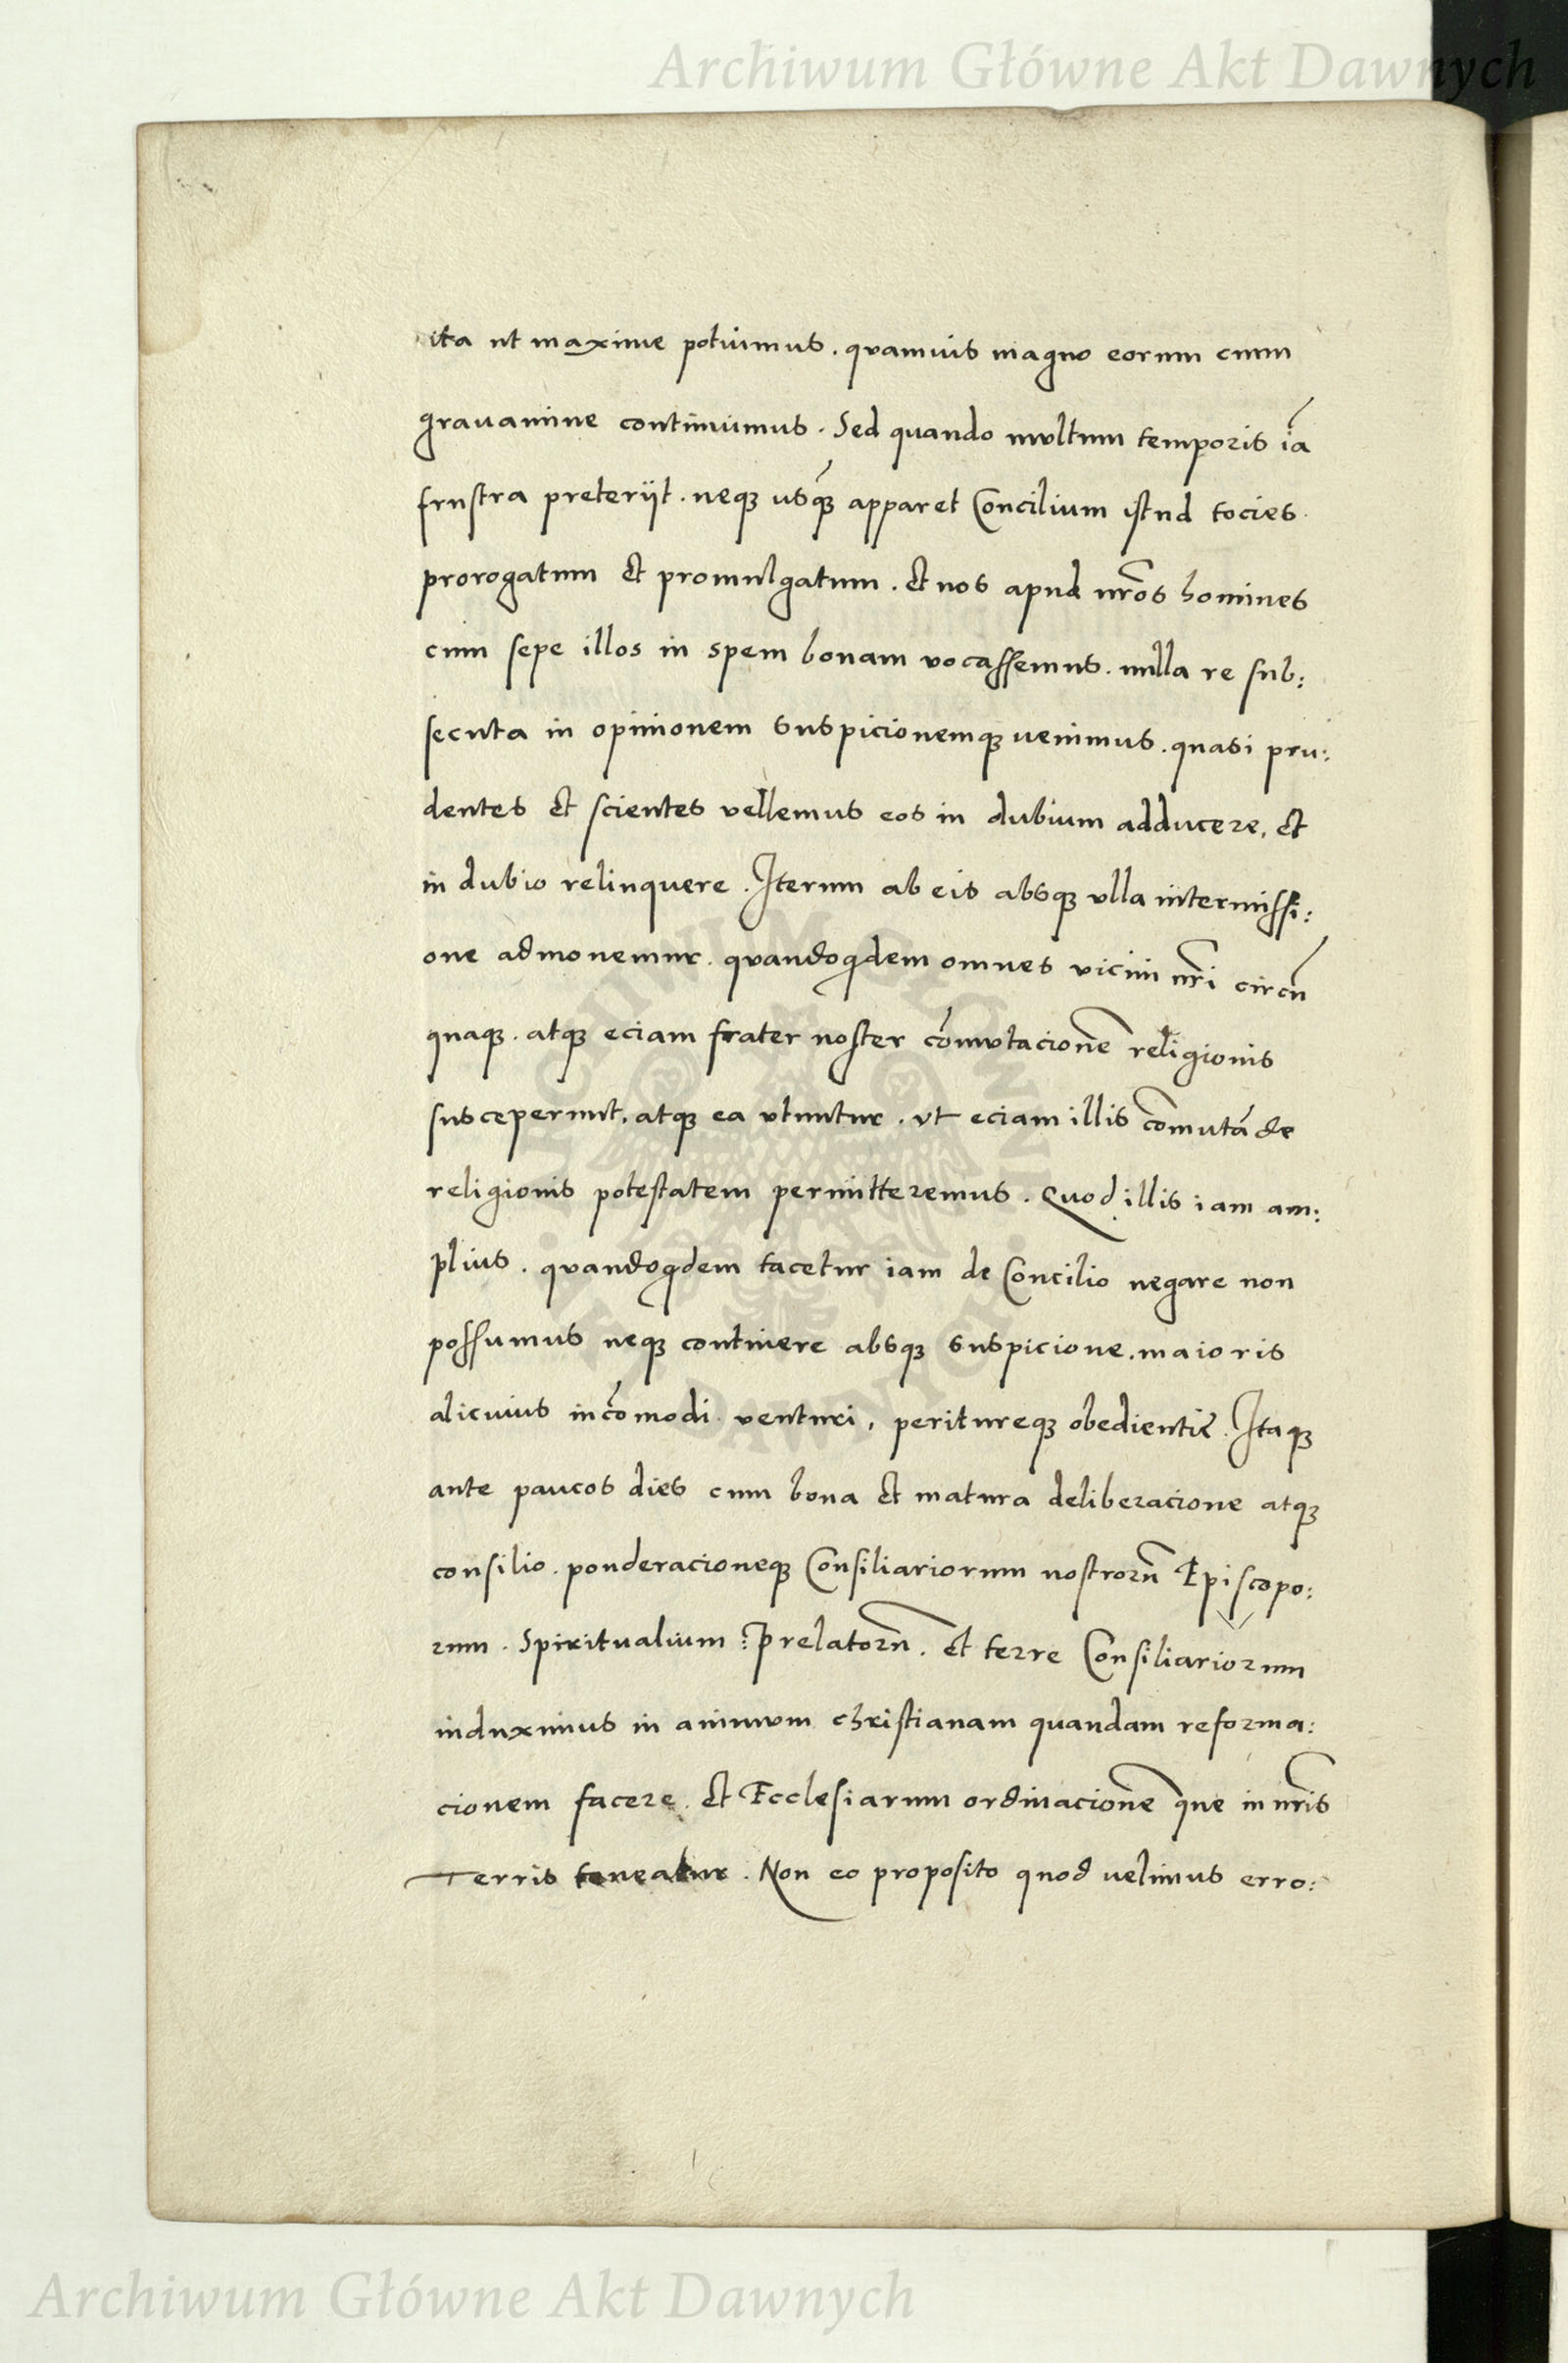 Archiwum Główne Akt Dawnych
ita ut maxime potuimus . quamuis magno eorum cum
grauamine continuimus . Sed quando multum temporis iā
frustra preterijt . neqꝫ usq̄ꝫ apparet Concilium istud tocies
prorogatum et promulgatum . et nos apud nr̄os homines
cum sepe illos in spem bonam vocassemus . nulla re sub:
secuta in opinionem suspicionemqꝫ uenimus . quasi pru:
dentes et scientes vellemus eos in dubium adducere, et
in dubio relinquere . Iterum ab eis absqꝫ vlla intermissi:
one admonemur . quandoqdem omnes vicini nr̄i circū
quaqꝫ . atqꝫ eciam frater noster cōmutacionē religionis
susceperunt, atqꝫ ea vtuntur . vt eciam illis cōmutādе
religionis potestatem permitteremus . Quod illis iam am:
plius . quandoqdem tacetur iam de Concilio negare non
possumus neqꝫ continere absqꝫ suspicione . maioris
alicuius incōmodi venturi , peritureqꝫ obedientiē . Itaqꝫ
ante paucos dies cum bona et matura deliberacione atqꝫ
consilio . ponderacioneqꝫ Consiliariorum nostrorū Episcopo:
rum . Spiritualium : prelatorū . et terre Consiliariorum
induximus in animum christianam quandam reforma:
cionem facere . et Ecclesiarum ordinacionē que in nr̄is
Terris teneatur . Non eo proposito quod uelimus erro:
ARCHIWUM GŁÓWNE AKT DAWNYCH
Archiwum Główne Akt Dawnych